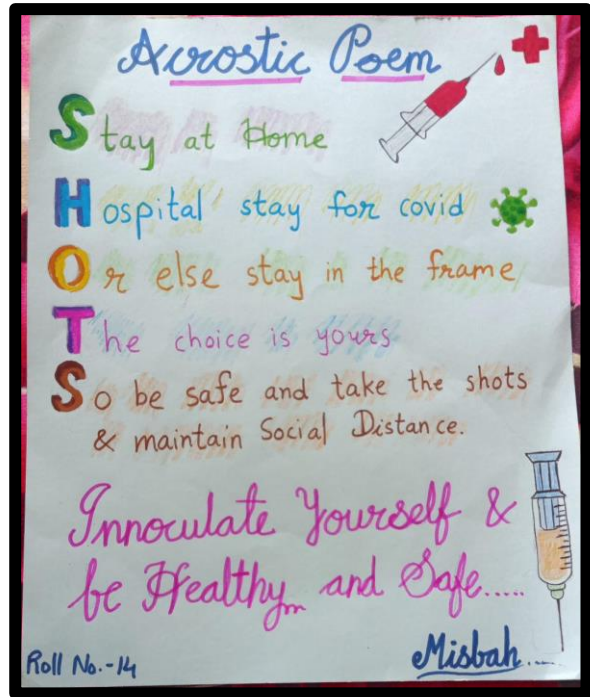 Acrostic Poem
Stay at Home
Hospital stay for covid
Or else stay in the frame
The choice is yours
So be safe and take the shots
& maintain Social Distance.
Innoculate Yourself &
be Healthy and Safe.....
Roll No.-14
Misbah....